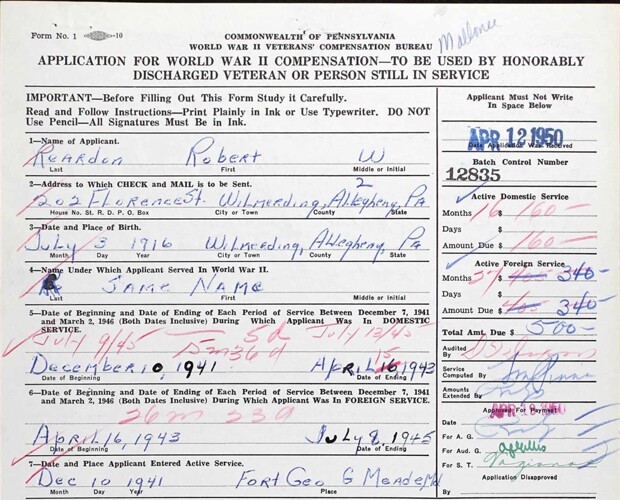 Form No. 1 -10
COMMONWEALTH OF PENNSYLVANIA
WORLD WAR II VETERANS' COMPENSATION BUREAU
APPLICATION FOR WORLD WAR II COMPENSATION—TO BE USED BY HONORABLY
DISCHARGED VETERAN OR PERSON STILL IN SERVICE
IMPORTANT—Before Filling Out This Form Study it Carefully.
Read and Follow Instructions—Print Plainly in Ink or Use Typewriter. DO NOT
Use Pencil—All Signatures Must Be in Ink.
1—Name of Applicant.
Reardon Robert W
Last First Middle or Initial
2—Address to Which CHECK and MAIL is to be Sent. 2
202 Florence St. Wilmerding, Allegheny, Pa
House No. St. R. D. P. O. Box City or Town County State
3—Date and Place of Birth.
July 3 1916 Wilmerding, Allegheny, Pa
Month Day Year City or Town County State
4—Name Under Which Applicant Served In World War II.
Same Name
Last First Middle or Initial
5—Date of Beginning and Date of Ending of Each Period of Service Between December 7, 1941
and March 2, 1946 (Both Dates Inclusive) During Which Applicant Was In DOMESTIC
SERVICE.
July 9/45 5d July 13/45
December 10, 1941 April 16, 1943
15
Date of Beginning Date of Ending
6—Date of Beginning and Date of Ending of Each Period of Service Between December 7, 1941
and March 2, 1946 (Both Dates Inclusive) During Which Applicant Was In FOREIGN SERVICE.
26m 23d
April 16, 1943 July 8, 1945
Date of Beginning Date of Ending
7—Date and Place Applicant Entered Active Service.
Dec 10 1941 Fort Geo G Meade Md
Month Day Year Place
Applicant Must Not Write
In Space Below
APR 12 1950
Date Application Was Received
Batch Control Number
12835
Active Domestic Service
Months 16 $ 160—
Days $
Amount Due $ 160—
Active Foreign Service
Months 27 $ 405 340—
Days $
Amount Due $ 405 340—
Total Amt. Due $ 500—
Audited
By
Service
Computed By
Amounts
Extended By
Approved For Payment
For A. G.
For Aud. G.
For S. T.
Application Disapproved